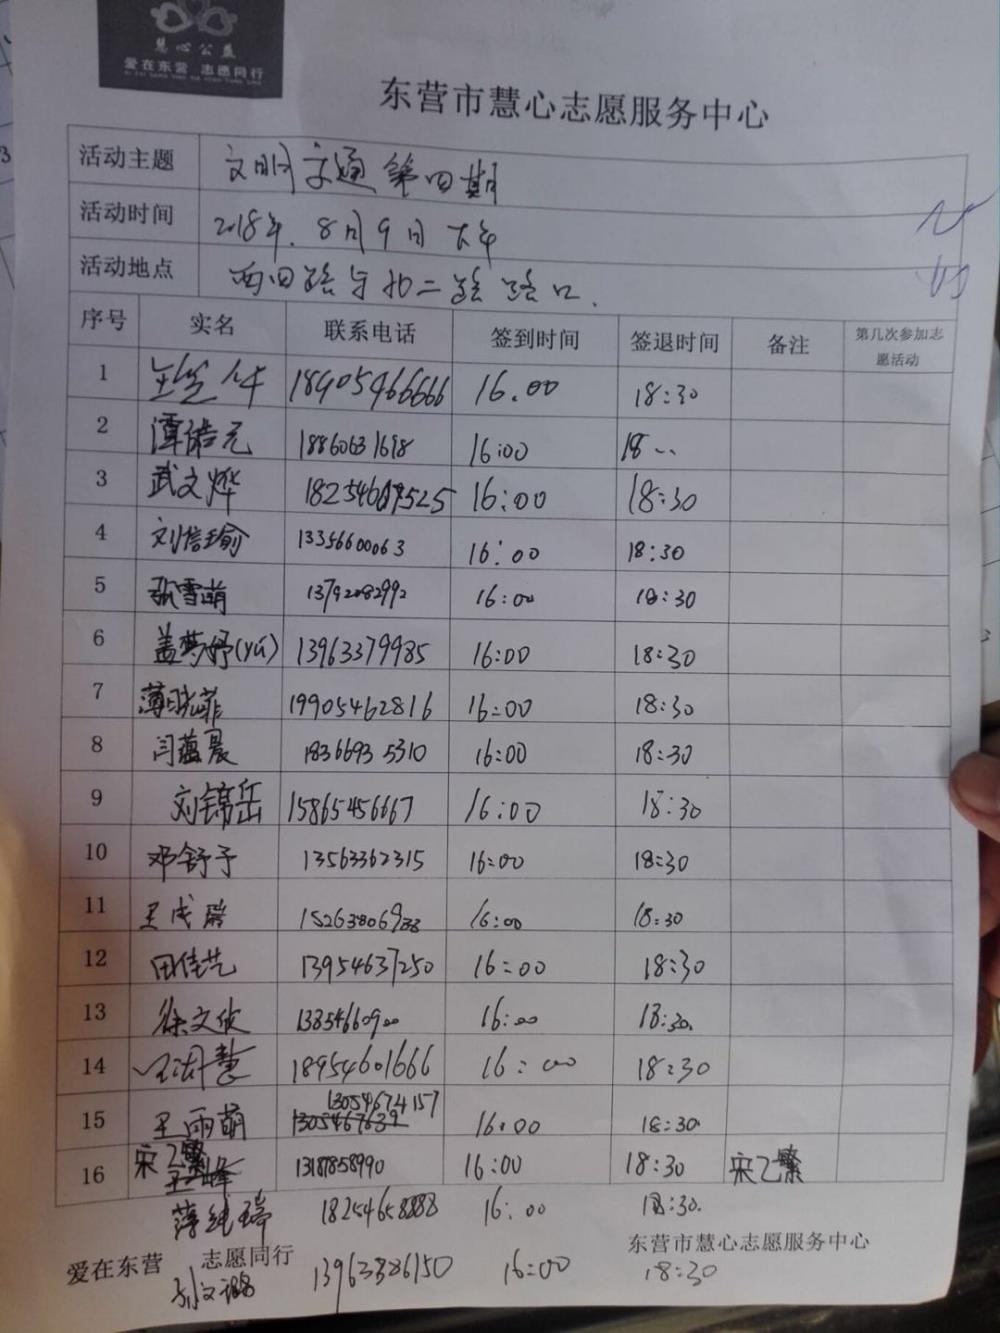 慧心公益
爱在东营 志愿同行
东营市慧心志愿服务中心
活动主题 文明交通第四期
活动时间 2018年.8月9日 下午
活动地点 西四路与北二路路口.
序号 实名 联系电话 签到时间 签退时间 备注 第几次参加志愿活动
1 18905466666 16.00 18:30
2 谭皓元 18860631698 16:00 18
3 武文烨 16:00 18:30
4 刘信瑜 13356600063 16:00 18:30
5 张雪萌 13792082992 16:00 18:30
6 盖梦妤(yú) 13963379985 16:00 18:30
7 薄晓菲 19905462816 16:00 18:30
8 闫蕴晨 18366935310 16:00 18:30
9 刘锦岳 15865456667 16:00 18:30
10 邓舒予 13563362315 16:00 18:30
11 王成 16:00 18:30
12 田佳艺 13954637250 16:00 18:30
13 徐文 13854660900 16:00 18:30.
14 18954601666 16:00 18:30
13054674157
15 王雨萌 16:00 18:30
16 宋乙繁 13187858990 16:00 18:30 宋乙繁
18254658888 16:00 18:30.
爱在东营 志愿同行 东营市慧心志愿服务中心
13963386150 16:00 18:30